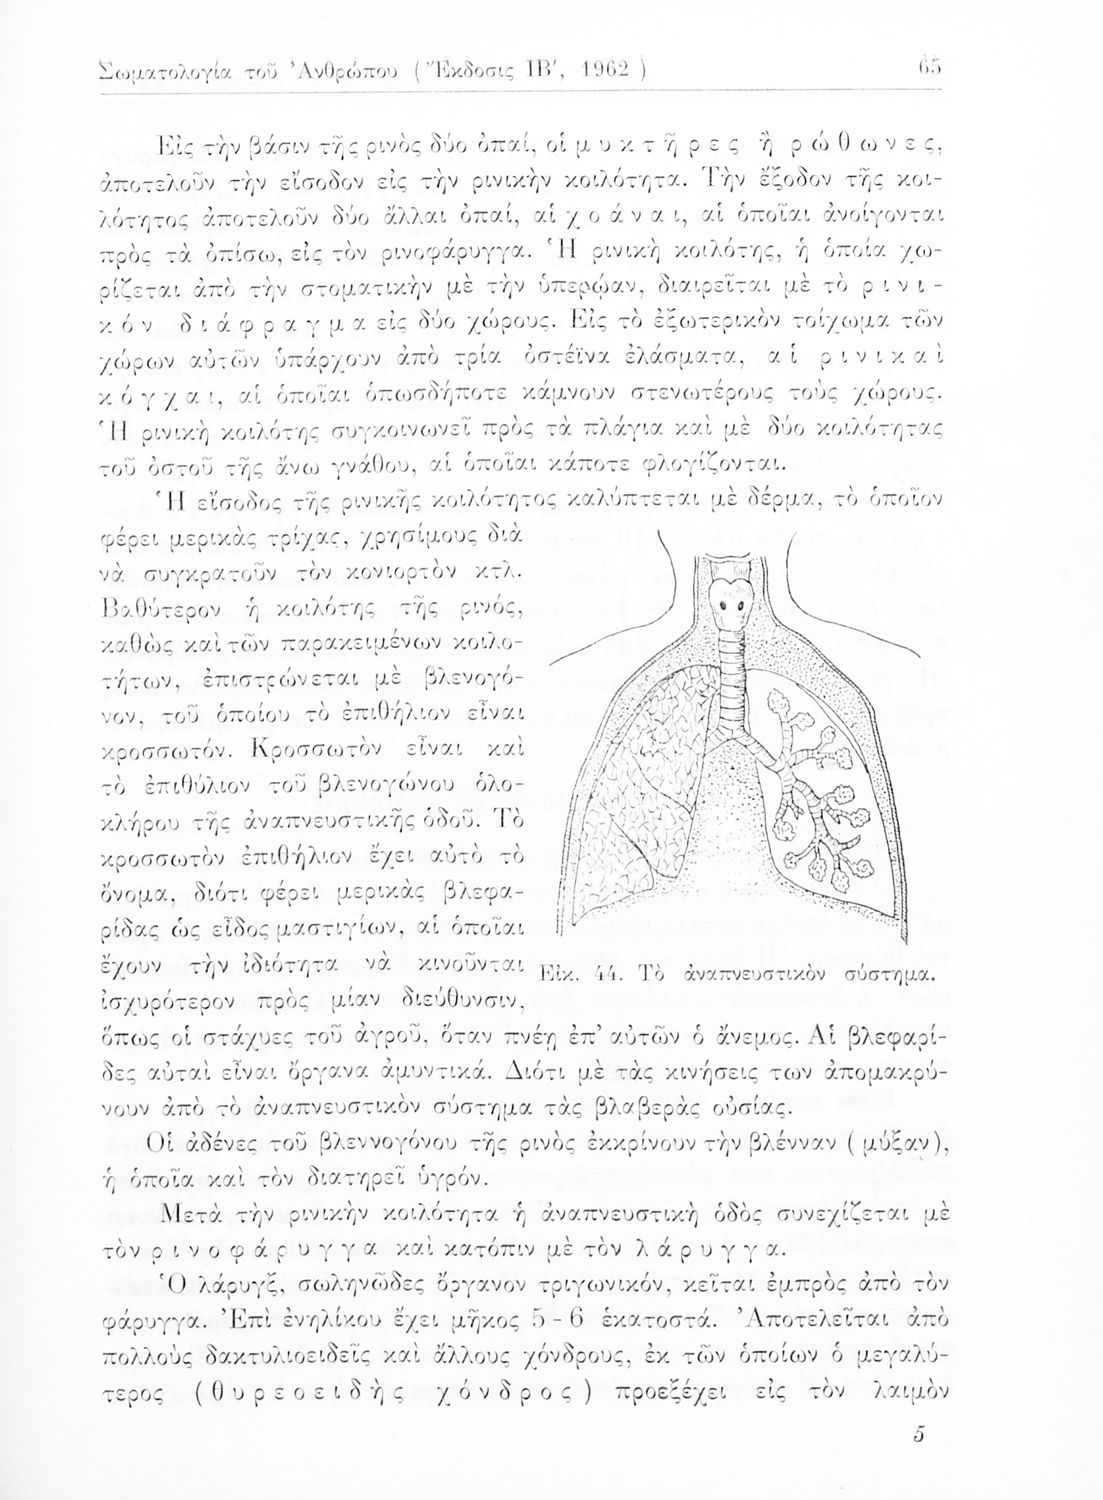 Σωματολογία τοῦ Ἀνθρώπου ( Ἔκδοσις ΙΒ′, 1962 ) 65
Εἰς τὴν βάσιν τῆς ρινὸς δύο ὀπαί, οἱ μ υ κ τ ῆ ρ ε ς ἢ ρ ώ θ ω ν ε ς,
ἀποτελοῦν τὴν εἴσοδον εἰς τὴν ρινικὴν κοιλότητα. Τὴν ἔξοδον τῆς κοι-
λότητος ἀποτελοῦν δύο ἄλλαι ὀπαί, αἱ χ ο ά ν α ι, αἱ ὁποῖαι ἀνοίγονται
πρὸς τὰ ὀπίσω, εἰς τὸν ρινοφάρυγγα. Ἡ ρινικὴ κοιλότης, ἡ ὁποία χω-
ρίζεται ἀπὸ τὴν στοματικὴν μὲ τὴν ὑπερῴαν, διαιρεῖται μὲ τὸ ρ ι ν ι -
κ ό ν δ ι ά φ ρ α γ μ α εἰς δύο χώρους. Εἰς τὸ ἐξωτερικὸν τοίχωμα τῶν
χώρων αὐτῶν ὑπάρχουν ἀπὸ τρία ὀστέϊνα ἐλάσματα, α ἱ ρ ι ν ι κ α ὶ
κ ό γ χ α ι, αἱ ὁποῖαι ὁπωσδήποτε κάμνουν στενωτέρους τοὺς χώρους.
Ἡ ρινικὴ κοιλότης συγκοινωνεῖ πρὸς τὰ πλάγια καὶ μὲ δύο κοιλότητας
τοῦ ὀστοῦ τῆς ἄνω γνάθου, αἱ ὁποῖαι κάποτε φλογίζονται.
Ἡ εἴσοδος τῆς ρινικῆς κοιλότητος καλύπτεται μὲ δέρμα, τὸ ὁποῖον
φέρει μερικὰς τρίχας, χρησίμους διὰ
νὰ συγκρατοῦν τὸν κονιορτὸν κτλ.
Βαθύτερον ἡ κοιλότης τῆς ρινός,
καθὼς καὶ τῶν παρακειμένων κοιλο-
τήτων, ἐπιστρώνεται μὲ βλενογό-
νον, τοῦ ὁποίου τὸ ἐπιθήλιον εἶναι
κροσσωτόν. Κροσσωτὸν εἶναι καὶ
τὸ ἐπιθύλιον τοῦ βλενογώνου ὁλο-
κλήρου τῆς ἀναπνευστικῆς ὁδοῦ. Τὸ
κροσσωτὸν ἐπιθήλιον ἔχει αὐτὸ τὸ
ὄνομα, διότι φέρει μερικὰς βλεφα-
ρίδας ὡς εἶδος μαστιγίων, αἱ ὁποῖαι
ἔχουν τὴν ἰδιότητα νὰ κινοῦνται
ἰσχυρότερον πρὸς μίαν διεύθυνσιν,
ὅπως οἱ στάχυες τοῦ ἀγροῦ, ὅταν πνέῃ ἐπ’ αὐτῶν ὁ ἄνεμος. Αἱ βλεφαρί-
δες αὐταὶ εἶναι ὄργανα ἀμυντικά. Διότι μὲ τὰς κινήσεις των ἀπομακρύ-
νουν ἀπὸ τὸ ἀναπνευστικὸν σύστημα τὰς βλαβερὰς οὐσίας.
Οἱ ἀδένες τοῦ βλεννογόνου τῆς ρινὸς ἐκκρίνουν τὴν βλένναν ( μύξαν),
ἡ ὁποῖα καὶ τὸν διατηρεῖ ὑγρόν.
Μετὰ τὴν ρινικὴν κοιλότητα ἡ ἀναπνευστικὴ ὁδὸς συνεχίζεται μὲ
τὸν ρ ι ν ο φ ά ρ υ γ γ α καὶ κατόπιν μὲ τὸν λ ά ρ υ γ γ α.
Ὁ λάρυγξ, σωληνῶδες ὄργανον τριγωνικόν, κεῖται ἐμπρὸς ἀπὸ τὸν
φάρυγγα. Ἐπὶ ἐνηλίκου ἔχει μῆκος 5 - 6 ἑκατοστά. Ἀποτελεῖται ἀπὸ
πολλοὺς δακτυλιοειδεῖς καὶ ἄλλους χόνδρους, ἐκ τῶν ὁποίων ὁ μεγαλύ-
τερος ( θ υ ρ ε ο ε ι δ ὴ ς χ ό ν δ ρ ο ς ) προεξέχει εἰς τὸν λαιμὸν
Εἰκ. 44. Τὸ ἀναπνευστικὸν σύστημα.
5